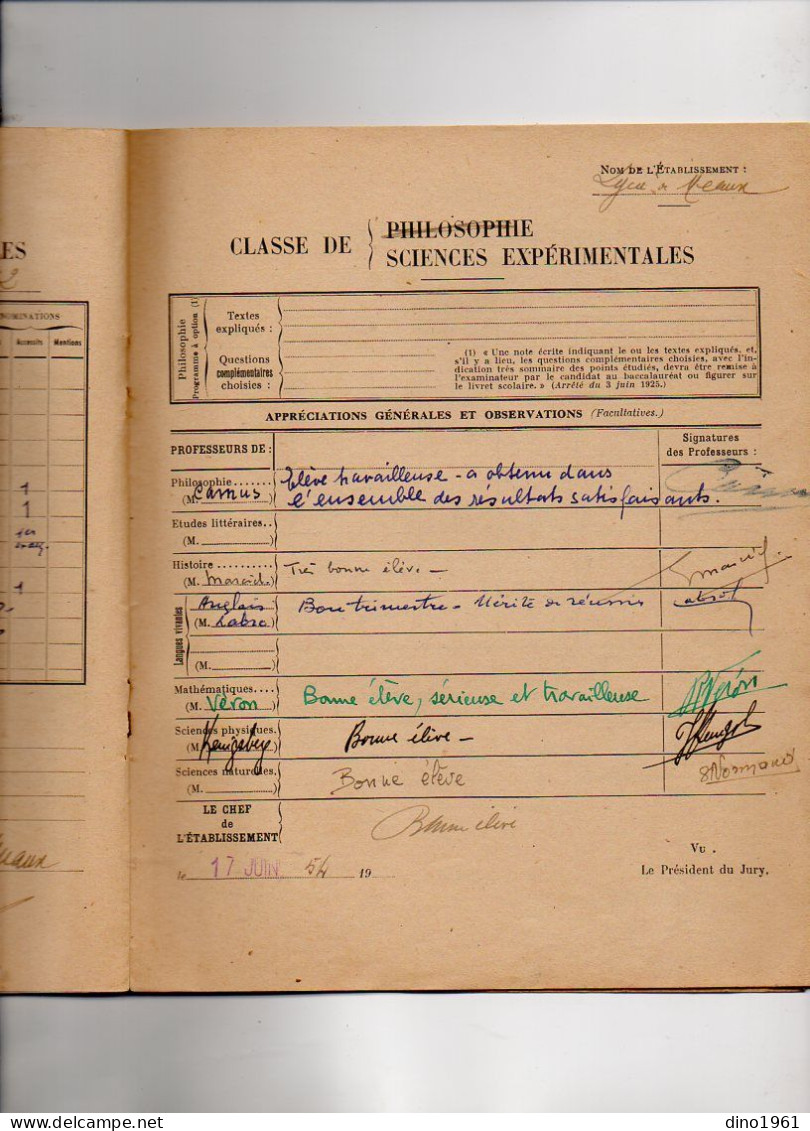 NOM DE L'ÉTABLISSEMENT :
Lycée de Meaux
CLASSE DE { PHILOSOPHIE
SCIENCES EXPÉRIMENTALES
ES
2
NOMINATIONS
Accessits Mentions
1
1
1
Philosophie
Programme à option (1)
Textes
expliqués :
Questions
complémentaires
choisies :
(1) « Une note écrite indiquant le ou les textes expliqués, et,
s'il y a lieu, les questions complémentaires choisies, avec l'in-
dication très sommaire des points étudiés, devra être remise à
l'examinateur par le candidat au baccalauréat ou figurer sur
le livret scolaire. » (Arrêté du 3 juin 1925.)
APPRÉCIATIONS GÉNÉRALES ET OBSERVATIONS (Facultatives.)
PROFESSEURS DE :
Signatures
des Professeurs :
Philosophie.......
(M. Camus)
Elève travailleuse - a obtenu dans
l'ensemble des résultats satisfaisants.
Etudes littéraires..
(M. )
Histoire ..........
(M. )
Très bonne élève. -
Langues vivantes
Anglais
(M. Labro)
Bon trimestre - Mérite de réussir
(M. )
Mathématiques....
(M. Véron)
Bonne élève, sérieuse et travailleuse
Véron
Sciences physiques.
(M. )
Bonne élève -
Sciences naturelles.
(M. )
Bonne élève
Normand
LE CHEF
de
L'ÉTABLISSEMENT
Bonne élève
le 17 JUIN 54 19
Vu .
Le Président du Jury,
dino1961